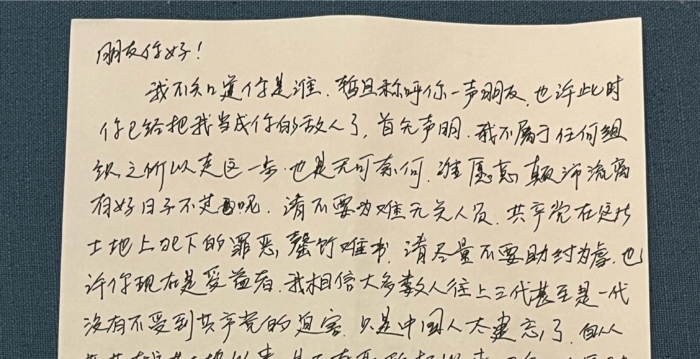 朋友你好！
我不知道你是谁，暂且称呼你一声朋友，也许此时
你已给把我当成你的敌人了，首先声明，我不属于任何组
织之所以走这一步，也是无可奈何，谁愿意颠沛流离
有好日子不过呢，请不要为难无关人员，共产党在这片
土地上犯下的罪恶，罄竹难书，请尽量不要助纣为虐，也
许你现在是受益者，我相信大多数人往上三代甚至是一代
没有不受到共产党的迫害，只是中国人太健忘了，自从